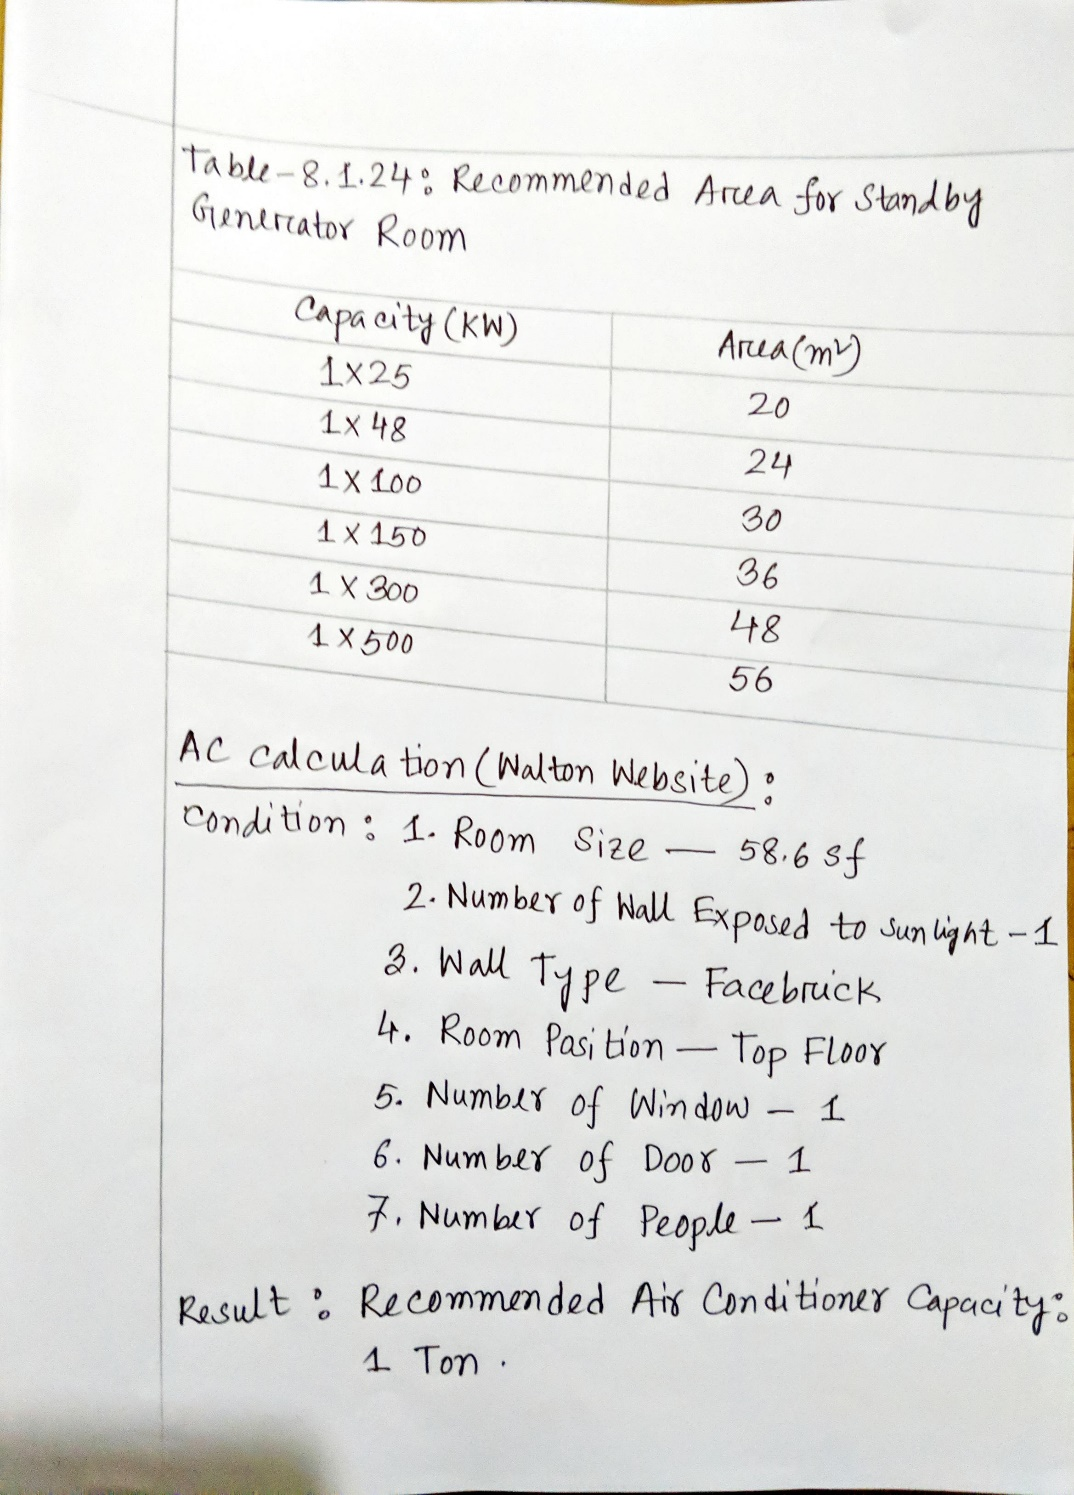 Table-8.1.24: Recommended Area for Standby
Generator Room
Capacity (KW) Area (m²)
1x25 20
1x48 24
1x100 30
1x150 36
1x300 48
1x500 56
AC calculation (Walton Website):
Condition: 1. Room Size — 58.6 sf
2. Number of Wall Exposed to sunlight - 1
3. Wall Type — Facebrick
4. Room Pasition — Top Floor
5. Number of Window — 1
6. Number of Door — 1
7. Number of People — 1
Result: Recommended Air Conditioner Capacity:
1 Ton.